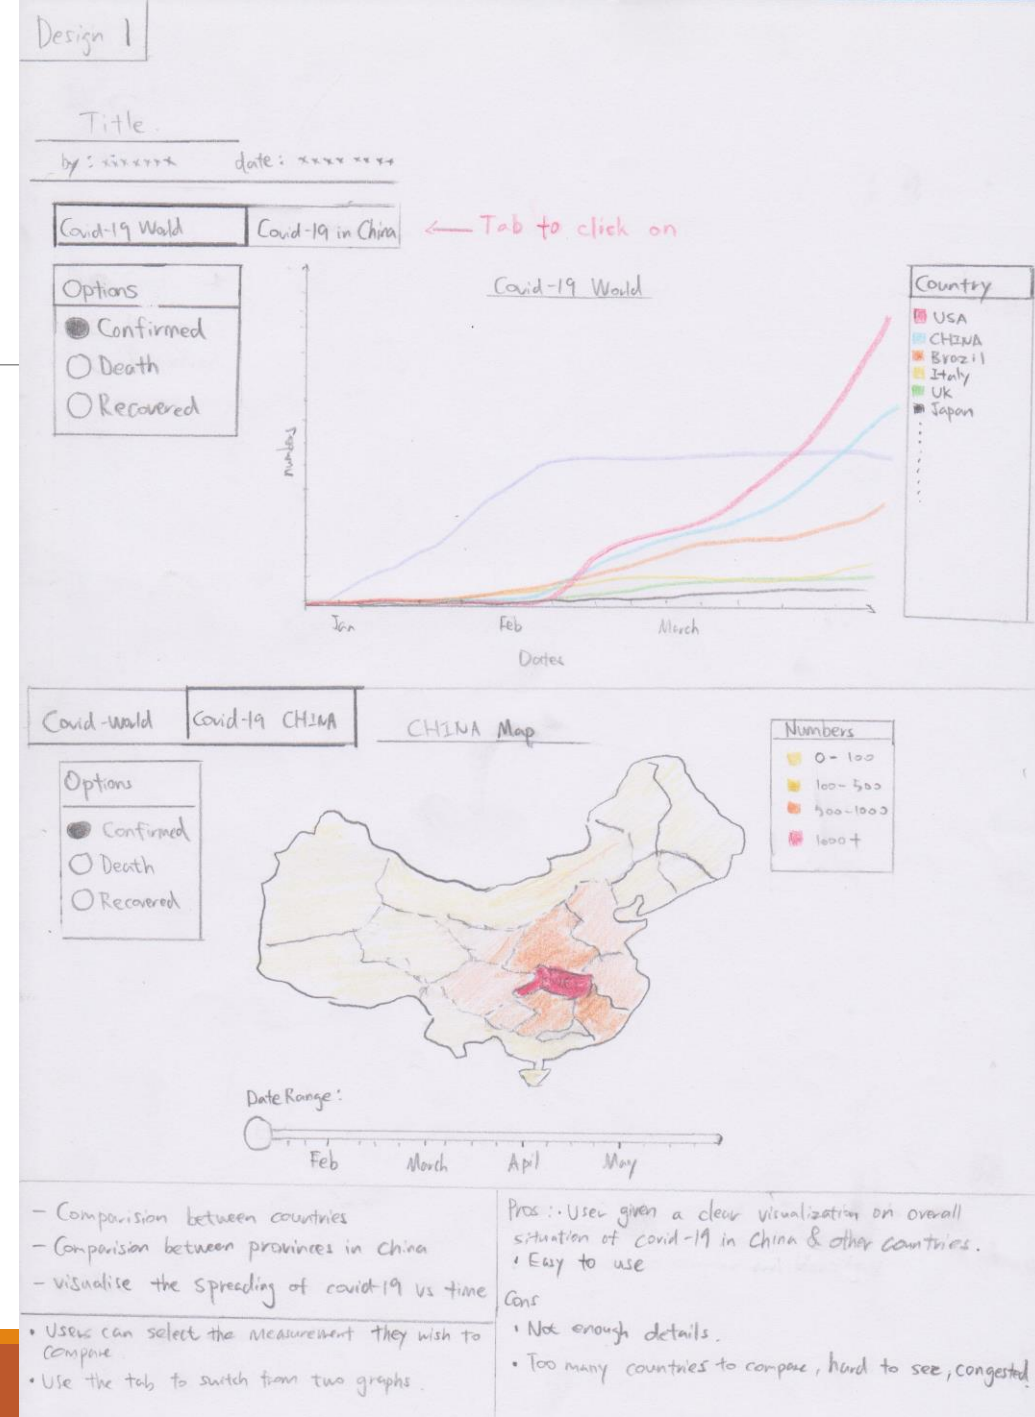 Design 1
Title.
by: xxxxxxx date: xxxx xxxx
Covid-19 World Covid-19 in China ← Tab to click on
Options
Confirmed
Death
Recovered
Covid-19 World
Country
USA
CHINA
Brazil
Italy
UK
Japan
numbers
Jan Feb March
Dates
Covid-world Covid-19 CHINA CHINA Map
Options
Confirmed
Death
Recovered
Numbers
0-100
100-500
500-1000
1000+
Date Range:
Feb March April May
- Comparision between countries
- Comparision between provinces in China
- visualise the spreading of covid-19 vs time
• Users can select the measurement they wish to
compare
• Use the tab to switch from two graphs.
Pros: • User given a clear visualization on overall
situation of covid-19 in China & other countries.
• Easy to use
Cons
• Not enough details.
• Too many countries to compare, hard to see, congested.